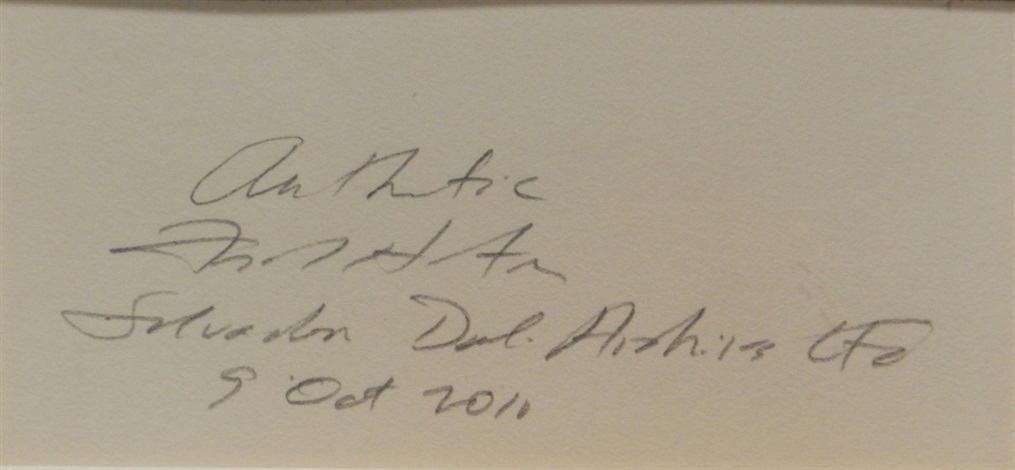 Authentic
Salvador Dali Archives Ltd
9 Oct 2011